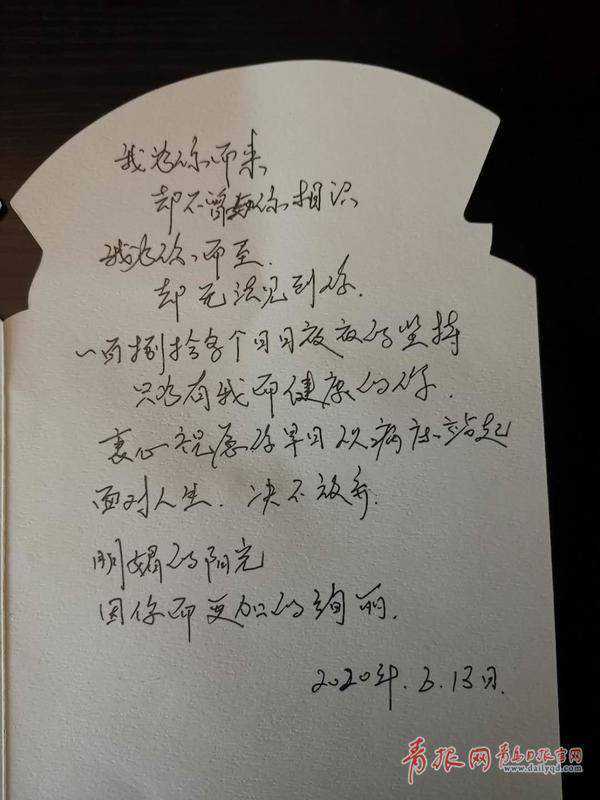 我为你而来
却不曾与你相识
我为你而至.
却无法见到你.
一百个日日夜夜的坚持
只为有我而健康的你.
衷心祝愿你早日从病床站起
面对人生.决不放弃.
明媚的阳光
因你而更加的绚丽.
2020年.3.13日.
青报网 青岛日报官网
www.dailyqd.com